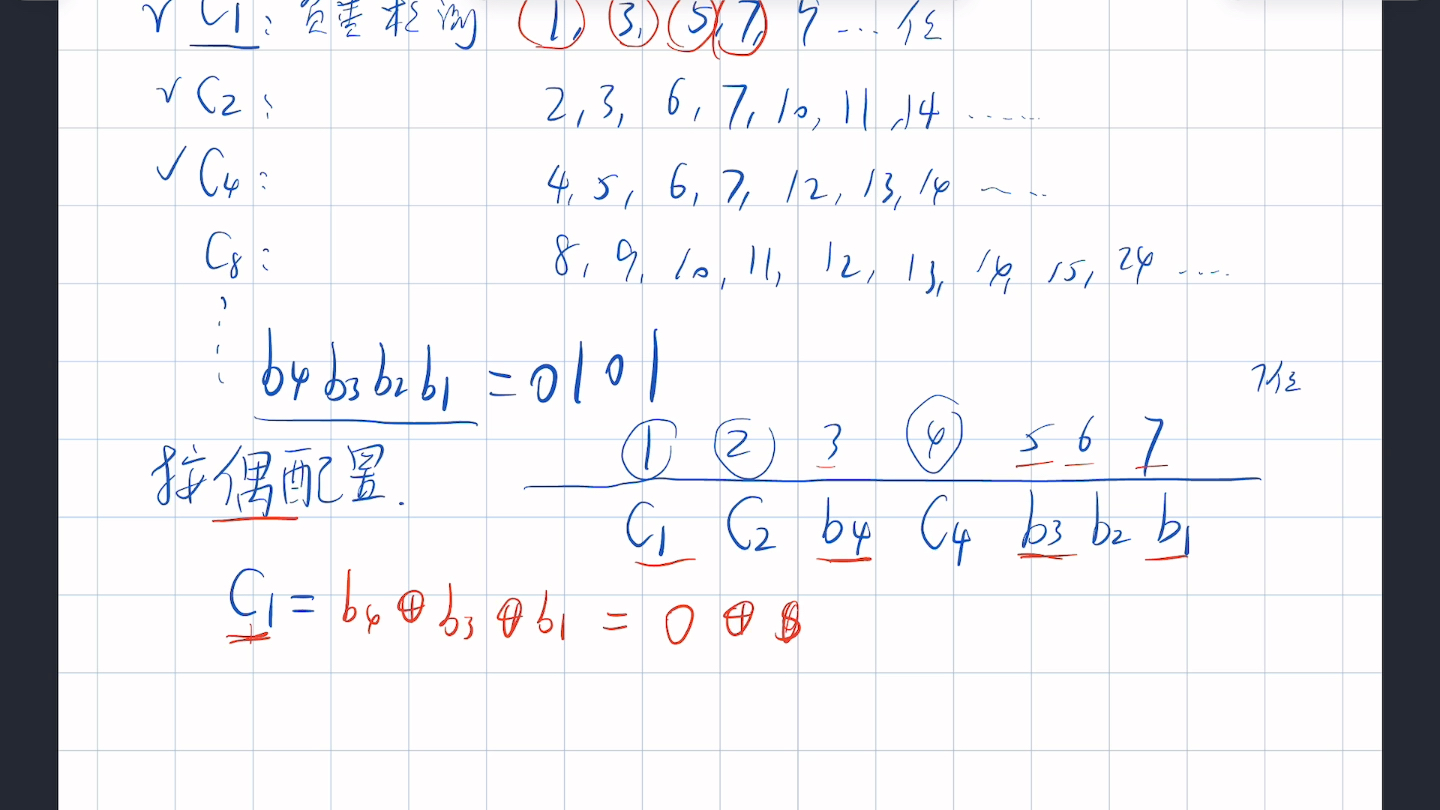 √ C1: 负责检测 1, 3, 5, 7, 9 ... 位
√ C2: 2, 3, 6, 7, 10, 11, 14 ......
√ C4: 4, 5, 6, 7, 12, 13, 14 ~ ...
C8: 8, 9, 10, 11, 12, 13, 14, 15, 24 ....
b4 b3 b2 b1 = 0101
7位
1 2 3 4 5 6 7
按偶配置.
C1 C2 b4 C4 b3 b2 b1
C1 = b4 ⊕ b3 ⊕ b1 = 0 ⊕